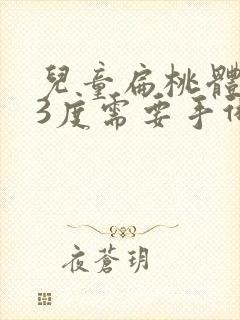 兒童扁桃體
3度需要手
夜蒼玥